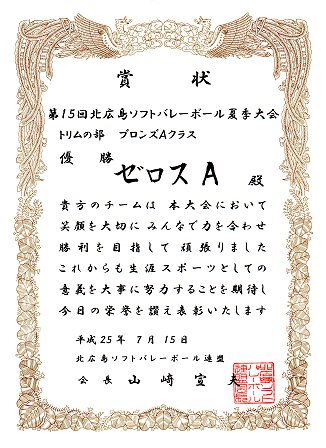 賞状
第15回北広島ソフトバレーボール夏季大会
トリムの部 ブロンズAクラス
優勝
ゼロスA 殿
貴方のチームは 本大会において
笑顔を大切に みんなで力を合わせ
勝利を目指して 頑張りました
これからも生涯スポーツとしての
意義を大事に努力することを期待し
今日の栄誉を讃え表彰いたします
平成25年 7月 15日
北広島ソフトバレーボール連盟
会長 山崎宣夫